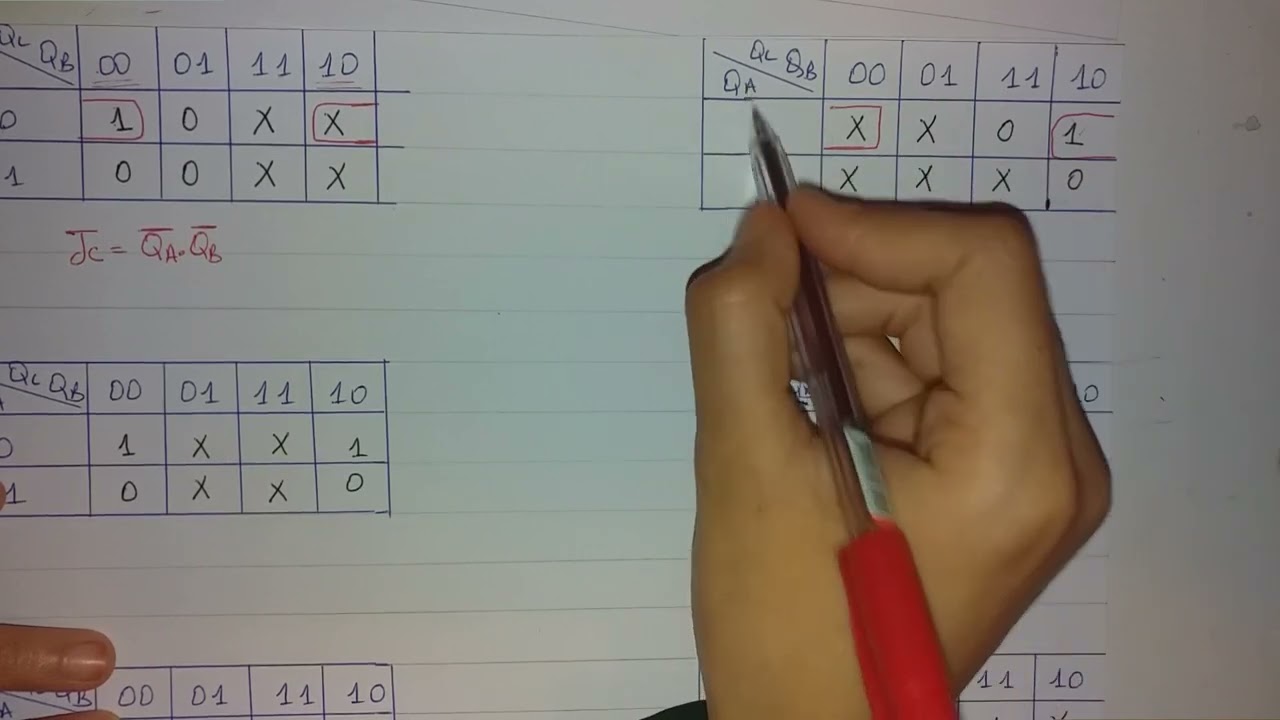 QC QB 00 01 11 10
0 1 0 X X
1 0 0 X X
JC = Q̅A.Q̅B
QC QB QA 00 01 11 10
X X 0 1
X X X 0
QC QB 00 01 11 10
0 1 X X 1
1 0 X X 0
QB 00 01 11 10
11 10